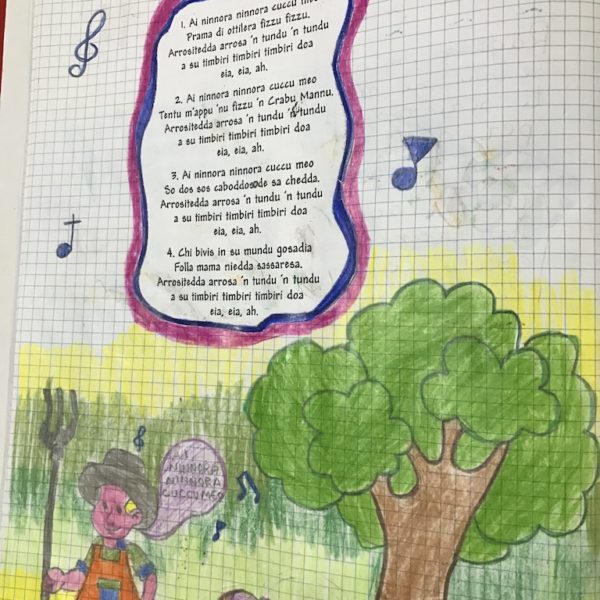 1. Ai ninnora ninnora cuccu meo
Prama di ottilera fizzu fizzu.
Arrositedda arrosa 'n tundu 'n tundu
a su timbiri timbiri timbiri doa
eia, eia, ah.
2. Ai ninnora ninnora cuccu meo
Tentu m'appu 'nu fizzu 'n Crabu Mannu.
Arrositedda arrosa 'n tundu 'n tundu
a su timbiri timbiri timbiri doa
eia, eia, ah.
3. Ai ninnora ninnora cuccu meo
So dos sos caboddos de sa chedda.
Arrositedda arrosa 'n tundu 'n tundu
a su timbiri timbiri timbiri doa
eia, eia, ah.
4. Chi bivis in su mundu gosadia
Folla mama niedda sassaresa.
Arrositedda arrosa 'n tundu 'n tundu
a su timbiri timbiri timbiri doa
eia, eia, ah.
AI
NINNORA
NINNORA
CUCCU MEO